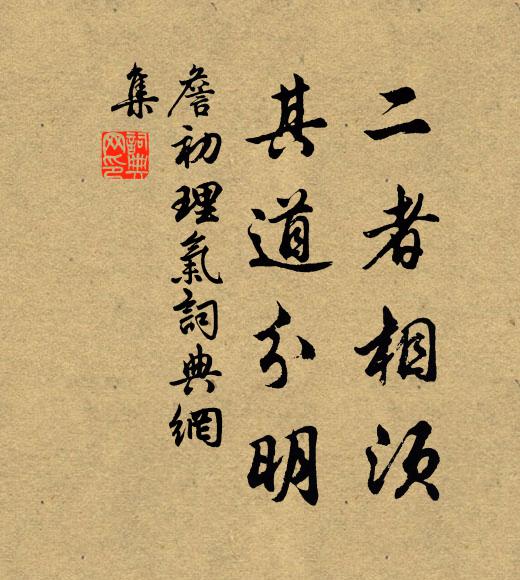 二者相須
其道分明
詹初理氣詞典網
集
詞典網印